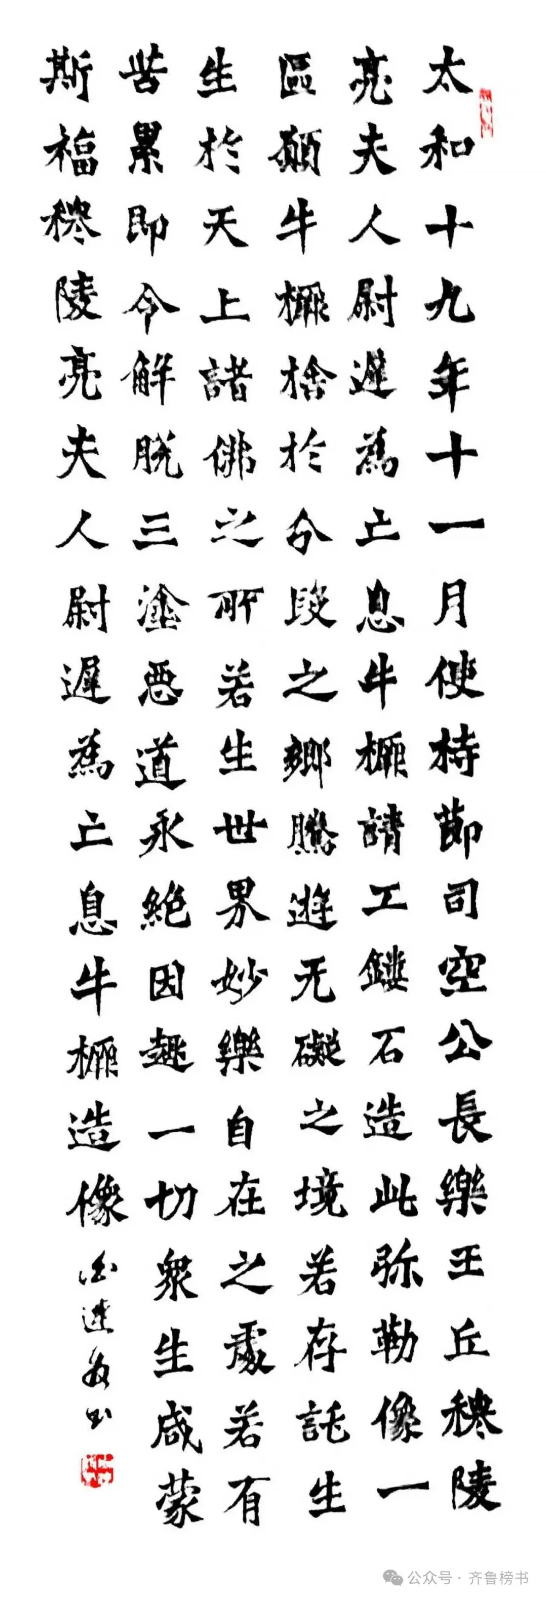 太和十九年十一月使持節司空公長樂王丘穆陵
亮夫人尉遲為亡息牛橛請工鏤石造此弥勒像一
區願牛橛捨於分段之鄉騰遊无礙之境若存託生
生於天上諸佛之所若生世界妙樂自在之處若有
苦累即令解脱三塗惡道永絶因趣一切衆生咸蒙
斯福穆陵亮夫人尉遲為亡息牛橛造像
书
公众号·齐鲁榜书